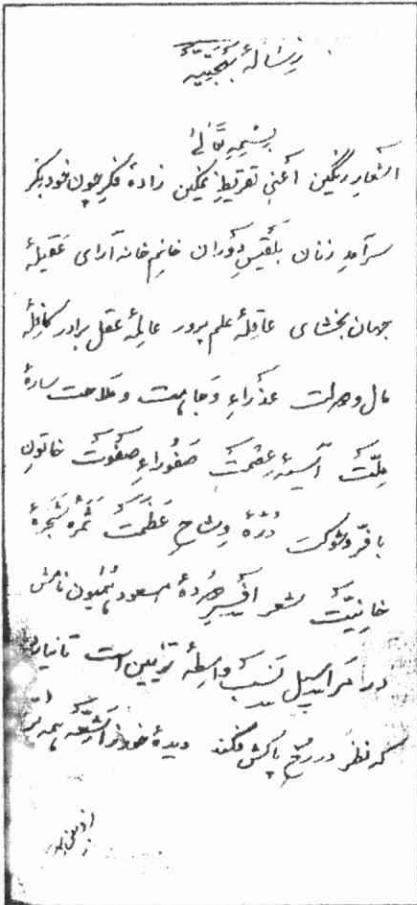 رسالهٔ بهجتیه
بسمه تعالی
اشعار رنگین اعنی تقریظ نمکین زادهٔ فکر چون خود بکر
سرآمد زنان بلقیس دوران خانم خانه آرای عقیلهٔ
جهان بخشای عاقلهٔ علم پرور عالمهٔ عقل برادر کافلهٔ
مال و دولت عذراء وجاهت و ملاحت سارهٔ
ملت آسیهٔ عصمت صفوراء صفوت خاتون
با فرّ و شوکت درّهٔ وشاح عظمت ثمرهٔ شجرهٔ
خانیت شعر مسعود همایون نامش
در نسب واسطهٔ تزیین است تا نیارد
که نظر در رخ پاکش فکند دیدهٔ خود را اشعهٔ همه